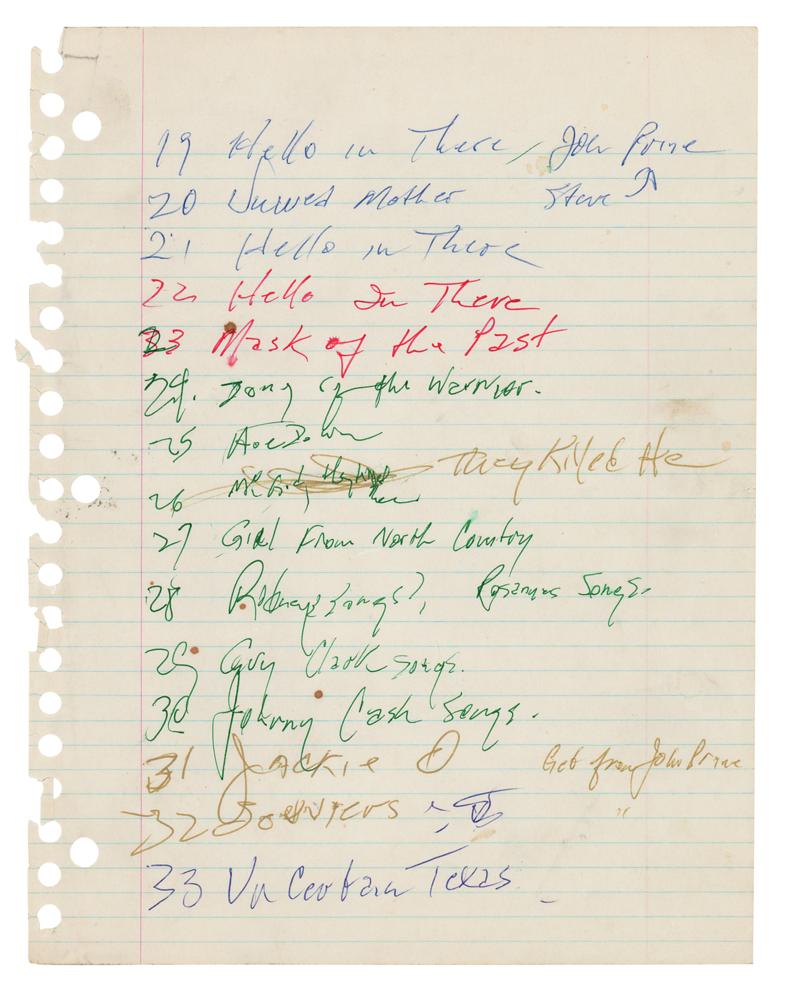 19 Hello in There, John Prine
20 Unwed Mother Steve
21 Hello in There
22 Hello In There
33 Mask of the Past
24. Song of the Warrior.
25 Hoe Down
26 They Killed He
27 Girl From North Country
28 Rodney's Songs?, Rosannes Songs.
29 Guy Clark songs.
30 Johnny Cash Songs.
31 Jackie O Get from John Prine
32 "
33 Un Certain Texas